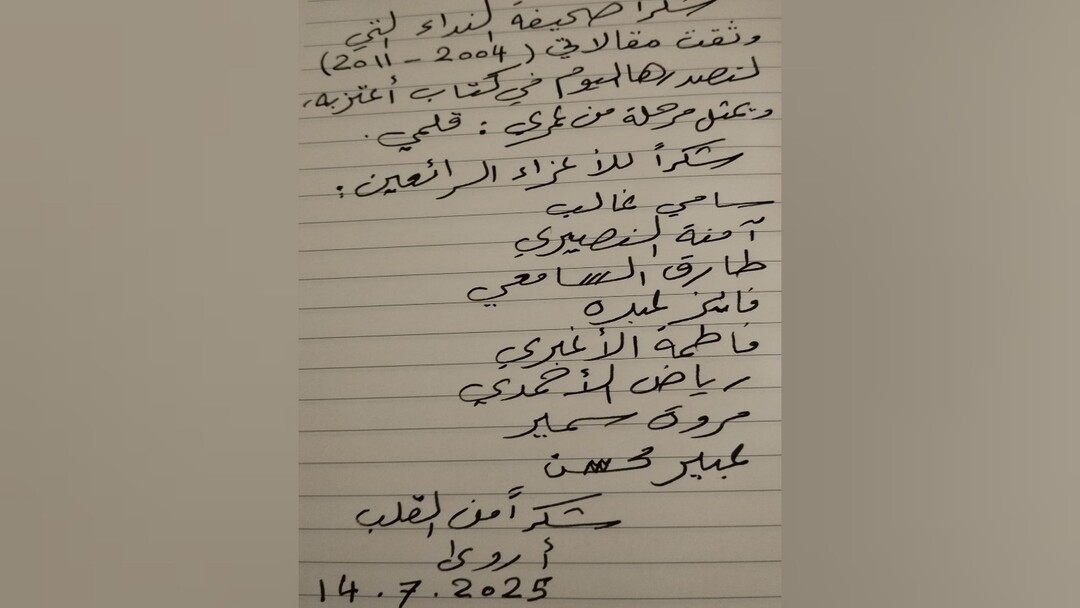 شكراً صحيفة النداء التي
وثقت مقالاتي (2004 - 2011)
لتصدرها اليوم في كتاب أعتز به،
ويمثل مرحلة من عمري : قلمي.
شكراً للأعزاء الرائعين :
سامي غالب
آمنة النصيري
طارق السامعي
فائز عبده
فاطمة الأغبري
رياض الأحمدي
مروة سمير
عبير محسن
شكراً من القلب
أروى
14.7.2025